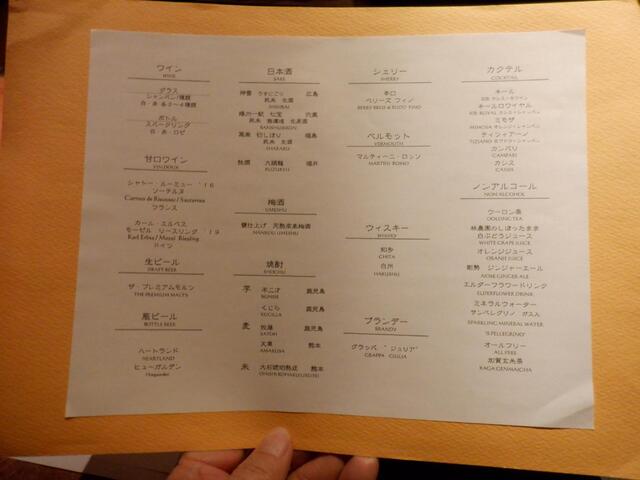 ワイン
WINE
グラス
シャンパン/4種類
白・赤 各3~4種類
ボトル
スパークリング
白・赤・ロゼ
甘口ワイン
VIN DOUX
シャトー・ルーミュー '16
ソーテルヌ
Sauternes
フランス
カール・エルベス
モーゼル リースリング '19
Karl Erbes / Mosel Riesling
ドイツ
生ビール
DRAFT BEER
ザ・プレミアムモルツ
THE PREMIUM MALT'S
瓶ビール
BOTTLE BEER
ハートランド
HEARTLAND
ヒューガルデン
Hoegaarden
日本酒
SAKE
神雷 うすにごり 広島
純米 生酒
SHINRAI
七宝
純米 無濾過 生原酒
初しぼり 福島
純米 生酒
熱燗 六根瓢 福井
梅酒
UMESHU
UMESHU
焼酎
SHOCHU
芋 不二才 鹿児島
BUNISE
くじら 鹿児島
KUGILLA
麦 佐藤 鹿児島
SATOH
天草 熊本
AMAKUSA
米 大石琥珀熟成 熊本
シェリー
SHERRY
辛口
ベリーズ フィノ
BERRY BROS & RUDD FINO
ベルモット
VERMOUTH
マルティーニ・ロッソ
MARTINI ROSSO
ウィスキー
WHISKY
知多
CHITA
白州
HAKUSHU
ブランデー
BRANDY
グラッパ “ジュリア”
GRAPPA GIULIA
カクテル
COCKTAIL
キール
KIR カシス・白ワイン
キールロワイヤル
KIR ROYAL カシス・シャンパン
ミモザ
MIMOSA オレンジ・シャンパン
ティツィアーノ
TIZIANO 赤ブドウ・シャンパン
カンパリ
CAMPARI
カシス
CASSIS
ノンアルコール
NON ALCOHOL
ウーロン茶
OOLONG TEA
林農園のしぼったまま
白ぶどうジュース
WHITE GRAPE JUICE
オレンジジュース
ORANGE JUICE
能勢 ジンジャーエール
NOSE GINGER ALE
エルダーフラワードリンク
ELDERFLOWER DRINK
ミネラルウォーター
サンペレグリノ ガス入
SPARKLING MINERAL WATER
S.PELLEGRINO
オールフリー
ALL FREE
加賀玄米茶
KAGA GENMAICHA